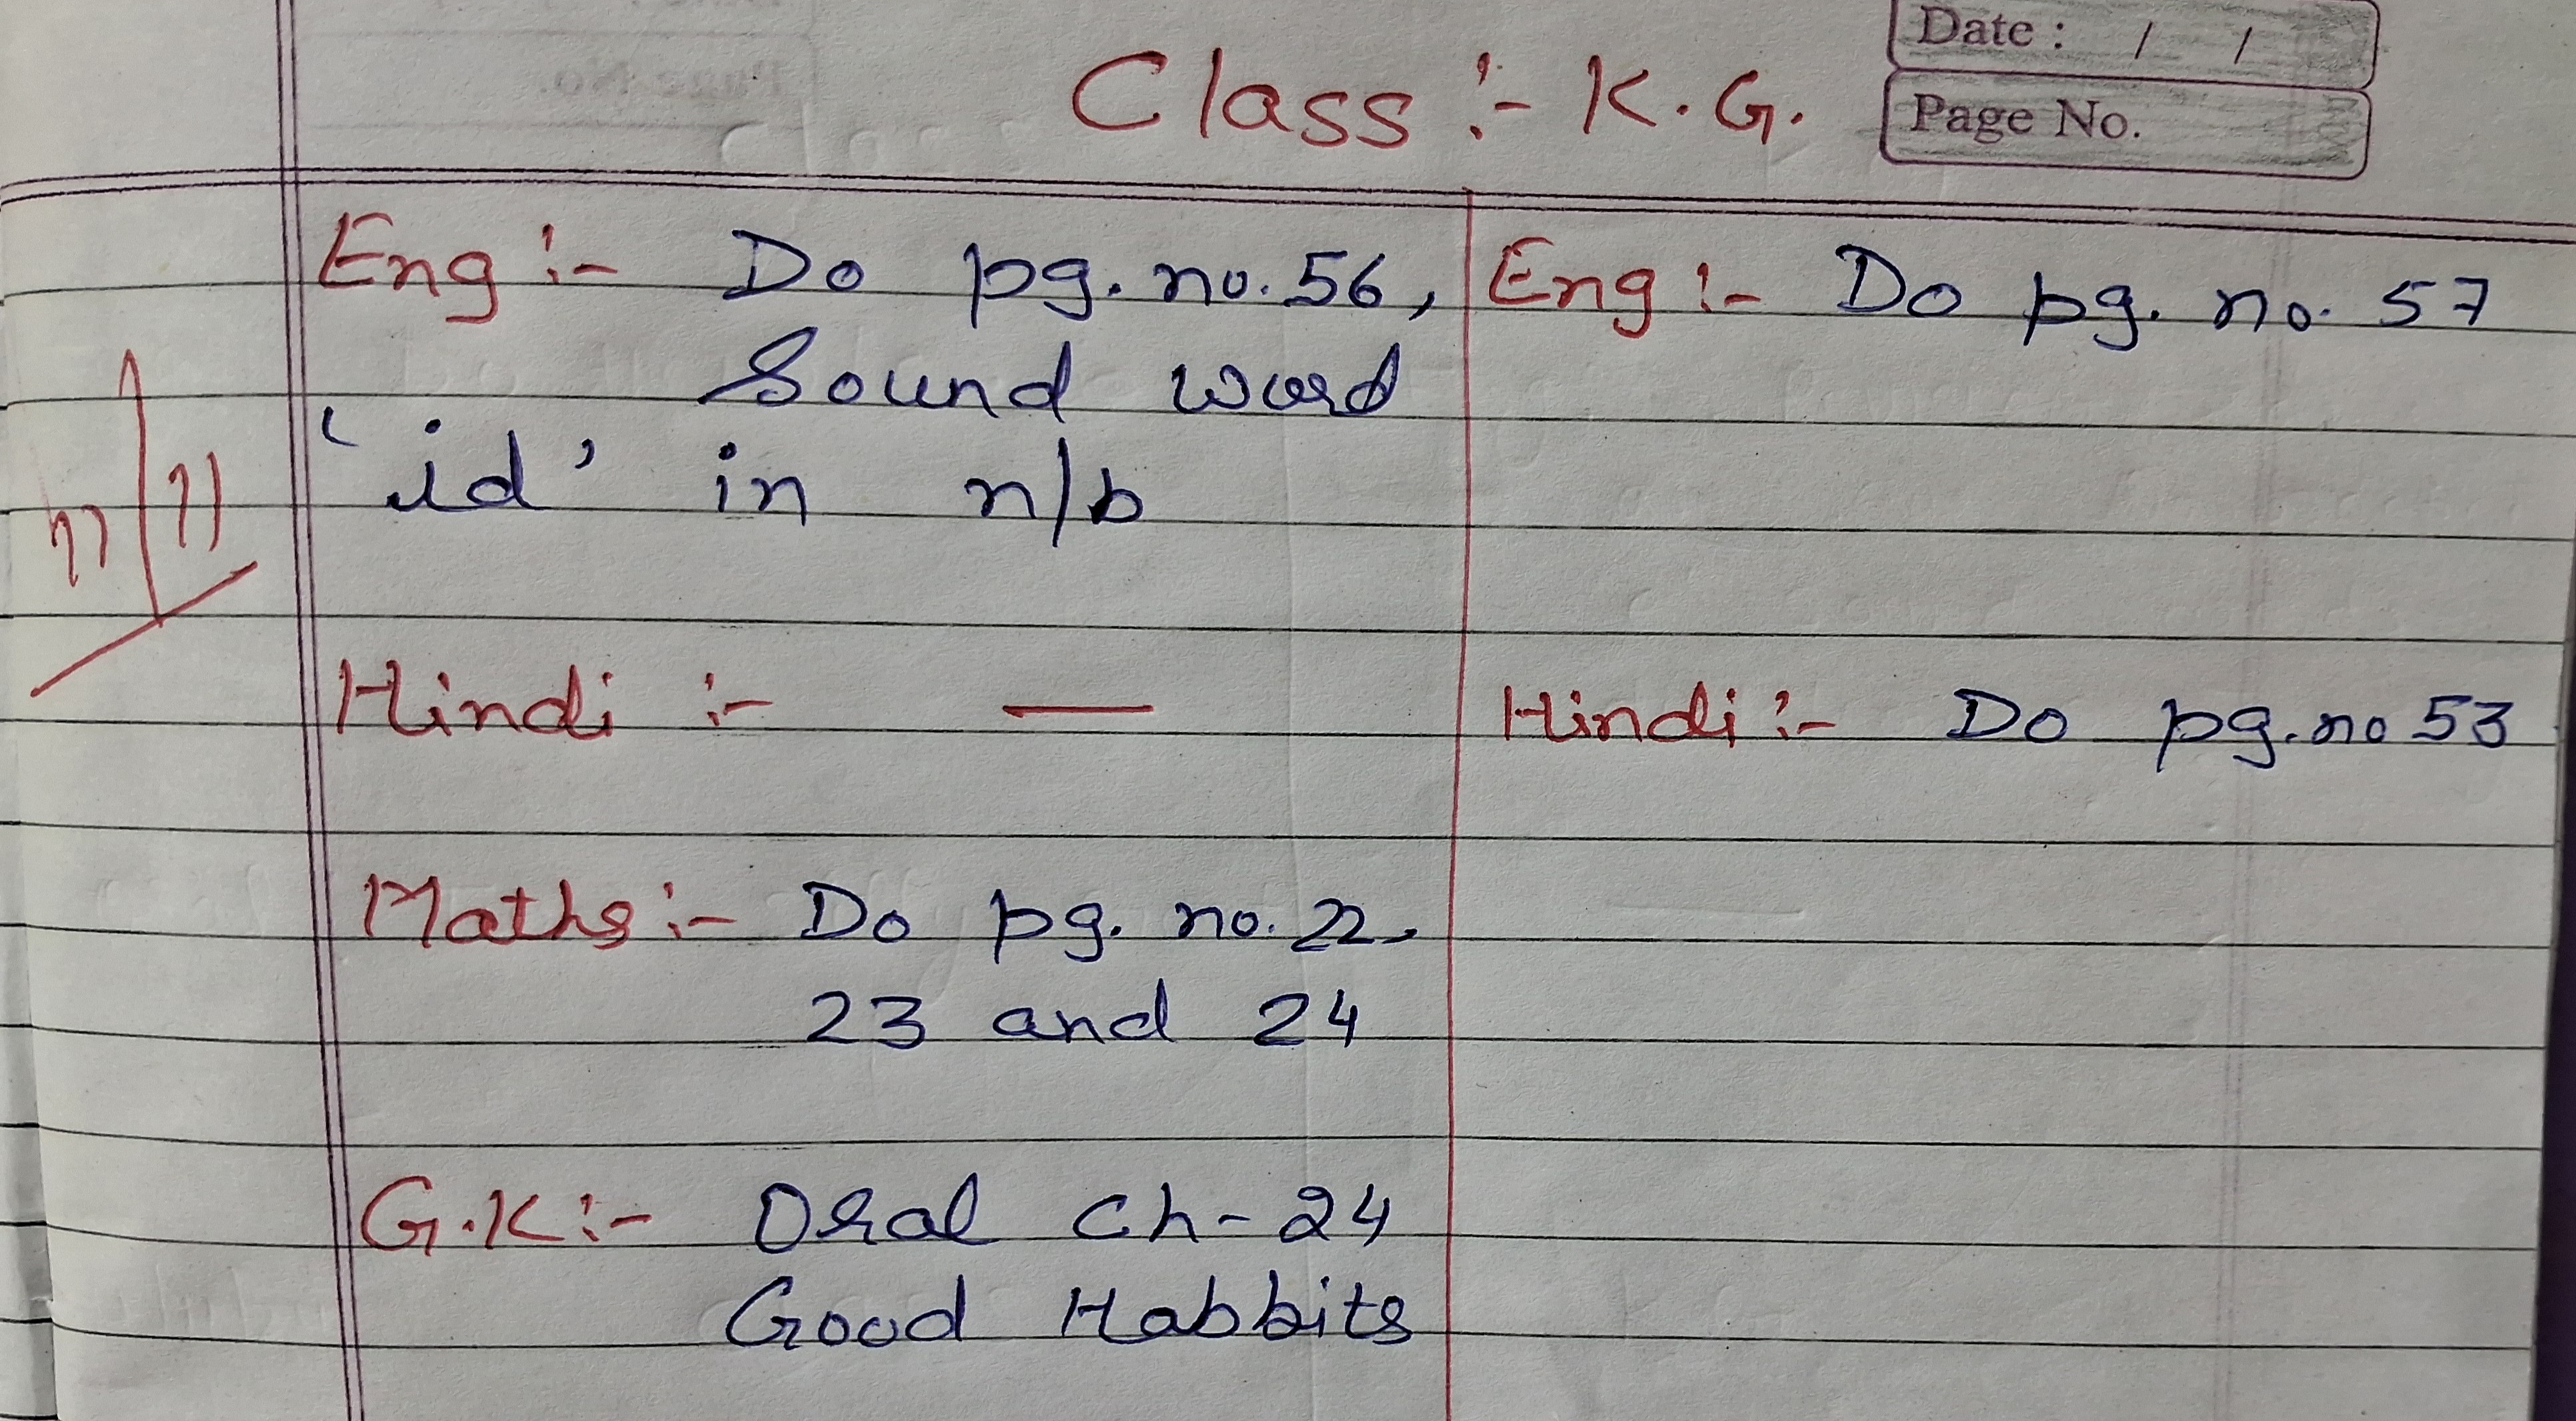 Date : / /
Page No.
Class :- K.G.
Eng :- Do pg. no. 56,
Sound word
'id' in n/b
Hindi :- —
Maths :- Do pg. no. 22,
23 and 24
G.K :- Oral Ch- 24
Good Habbits
Eng :- Do pg. no. 57
Hindi :- Do pg. no 53